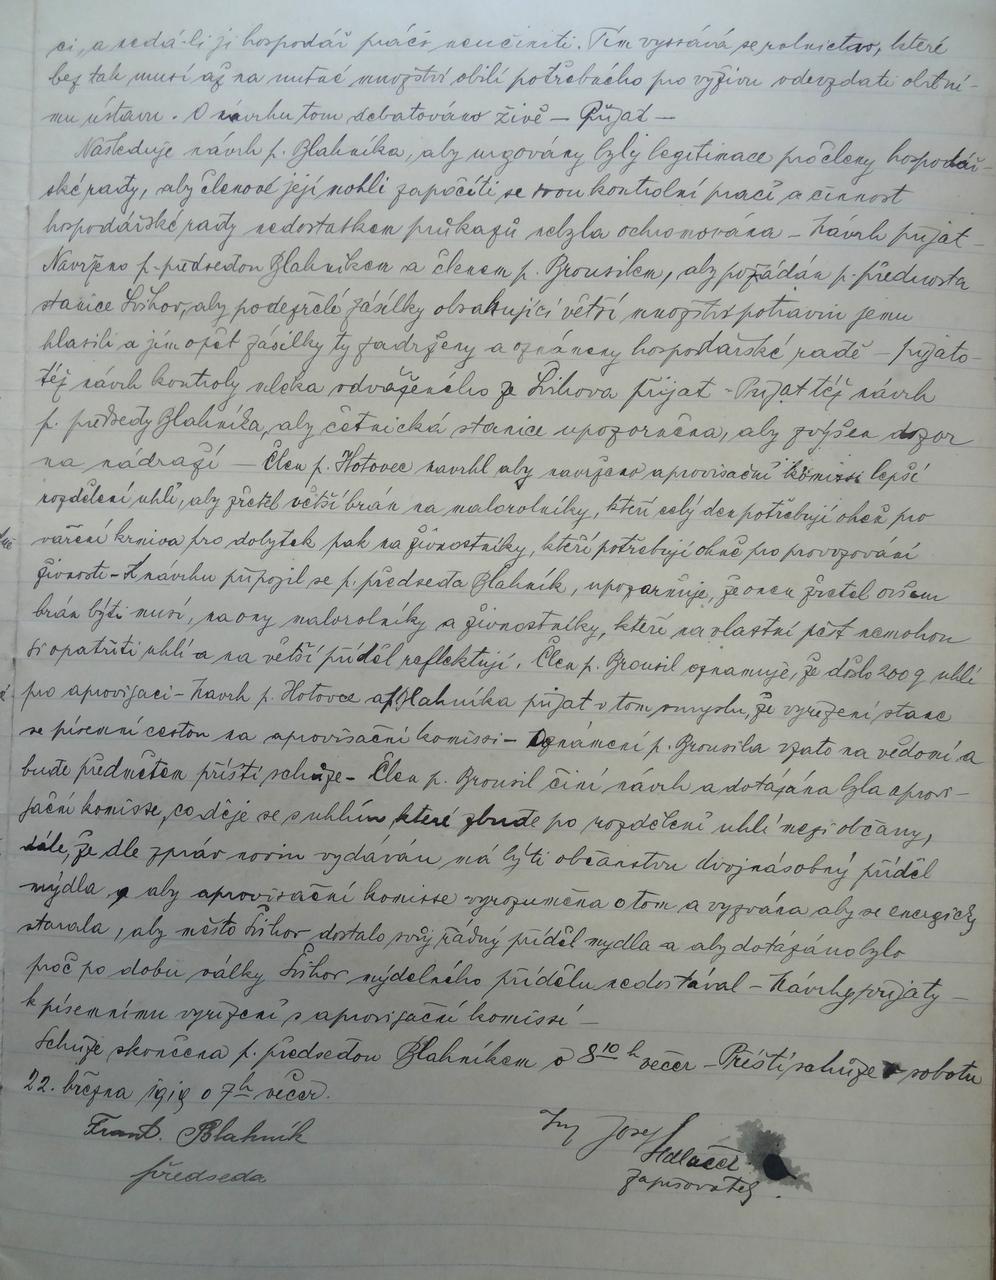 ci, a nedá-li ji hospodář práci neučiniti. Tím vyssává se rolnictvo, které
bez tak musí až na nutné množství obilí potřebného pro výživu odevzdati obilní-
mu ústavu. O návrhu tom debatováno živě – Přijat –
Následuje návrh p. Blahníka, aby urgovány byly legitimace pro členy hospodář-
ské rady, aby členové její mohli započíti se svou kontrolní prací a činnost
hospodářské rady nedostatkem průkazů nebyla ochromována – Návrh přijat –
Navrženo p. předsedou Blahníkem a členem p. Brousilem, aby požádán p. přednosta
stanice Švihov, aby podezřelé zásilky obsahující větší množství potravin jemu
hlásili a jím opět zásilky ty zadrženy a oznámeny hospodářské radě – přijato –
též návrh kontroly mléka odváženého ze Švihova přijat – Přijat též návrh
p. předsedy Blahníka, aby četnická stanice upozorněna, aby zvýšen dozor
na nádraží — Člen p. Hotovec navrhl aby navrženo aprovisační komissi lepší
rozdělení uhlí, aby zřetel větší brán na malorolníky, kteří celý den potřebují oheň pro
vaření krmiva pro dobytek pak na živnostníky, kteří potřebují ohně pro provozování
živnosti – K návrhu připojil se p. předseda Blahník, upozorňuje, že onen zřetel ovšem
brán býti musí, na ony malorolníky a živnostníky, kteří na vlastní pěst nemohou
si opatřiti uhlí a na větší příděl reflektují. Člen p. Brousil oznamuje, že došlo 200 q uhlí
pro aprovisaci – Návrh p. Hotovce a p. Blahníka přijat v tom smyslu, že vyřízení stane
se písemní cestou na aprovisační komissi – Oznámení p. Brousila vzato na vědomí a
bude předmětem příští schůze – Člen p. Brousil činí návrh a dotázána byla aprovi-
sační komisse, co děje se s uhlím, které zbude po rozdělení uhlí mezi občany,
dále, že dle zpráv novin vydáván má býti občanstvu dvojnásobný příděl
mýdla, aby aprovisační komisse vyrozuměna o tom a vyzvána aby se energicky
starala, aby město Švihov dostalo svůj řádný příděl mýdla a aby dotázáno bylo
proč po dobu války Švihov mýdelného přídělu nedostával – Návrhy přijaty –
k písemnímu vyřízení s aprovisační komissí –
Schůze skončena p. předsedou Blahníkem o 8 10 h večer – Příští schůze v sobotu
22. března 1919 o 7 h večer.
Frant. Blahník
předseda
Ing Josef
Sedláček
zapisovatel.